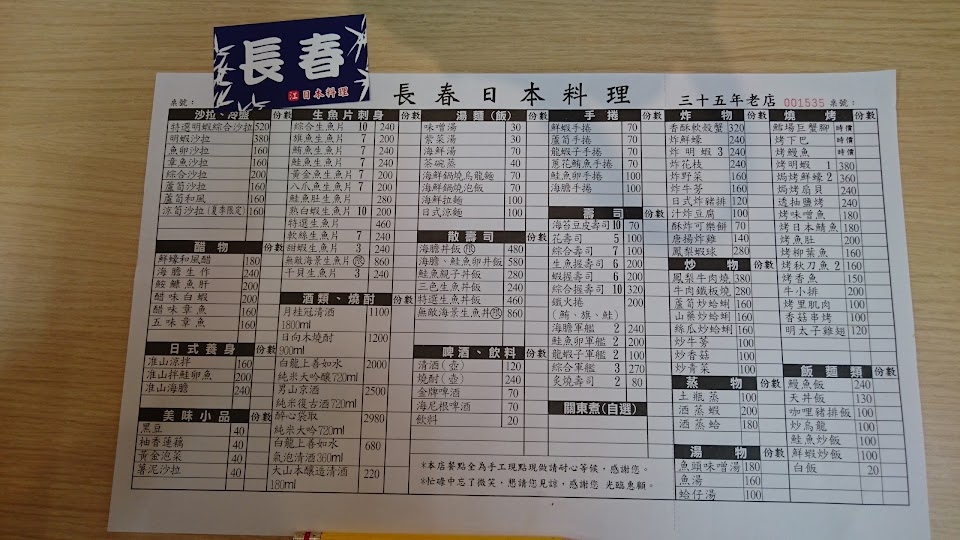 長春
江日本料理
長春日本料理
三十五年老店 001535 桌號：
桌號：
沙拉、冷盤 份數
特選明蝦綜合沙拉 520
明蝦沙拉 380
魚卵沙拉 160
章魚沙拉 160
綜合沙拉 200
蘆筍沙拉 160
蘆筍和風 160
涼筍沙拉(夏季限定) 160
醋物 份數
鮮蠔和風醋 180
海膽生作 240
鮟鱇魚肝 200
醋味白蝦 200
醋味章魚 160
五味章魚 160
日式養身 份數
淮山涼拌 160
淮山拌鮭卵魚 200
淮山海膽 240
美味小品 份數
黑豆 40
柚香蓮藕 40
黃金泡菜 40
薯泥沙拉 40
生魚片刺身 份數
綜合生魚片 10 240
旗魚生魚片 7 200
鮪魚生魚片 7 200
鮭魚生魚片 7 240
黃金魚生魚片 7 200
八爪魚生魚片 7 160
鮭魚肚生魚片 280
熟白蝦生魚片 10 200
特選生魚片 460
軟絲生魚片 3 240
甜蝦生魚片 3 240
無敵海景生魚片 860
干貝生魚片 3 240
酒類、燒酎 份數
月桂冠清酒 1100
1800ml
日向木挽燒酎 1200
900ml
白龍上善如水 2000
純米大吟釀720ml
男山京酒 2500
純米復古酒720ml
醉心袋取 2980
純米大吟720ml
白龍上善如水 680
氣泡清酒360ml
大山本釀造清酒 220
180ml
湯麵(飯) 份數
味噌湯 30
紫菜湯 30
海鮮湯 70
茶碗蒸 40
海鮮鍋燒烏龍麵 70
海鮮鍋燒泡飯 70
海鮮拉麵 100
日式涼麵 100
散壽司 份數
海膽丼飯 480
海膽、鮭魚卵丼飯 580
鮭魚親子丼飯 240
三色生魚丼飯 240
特選生魚丼飯 460
無敵海景生魚丼 860
啤酒、飲料 份數
清酒(壺) 120
燒酎(壺) 240
金牌啤酒 70
海尼根啤酒 70
飲料 20
手捲 份數
鮮蝦手捲 70
蘆筍手捲 70
龍蝦子手捲 70
蔥花鮪魚手捲 100
鮭魚卵手捲 100
海膽手捲 160
壽司 份數
海苔豆皮壽司 10 70
花壽司 5 100
綜合壽司 7 100
生魚握壽司 6 200
蝦握壽司 6 200
綜合握壽司 10 320
鐵火捲 200
(鮪、旗、鮭)
海膽軍艦 2 240
鮭魚卵軍艦 2 200
龍蝦子軍艦 2 100
綜合軍艦 3 270
炙燒壽司 2 80
關東煮(自選)
＊本店餐點全為手工現點現做請耐心等候，感謝您。
＊忙碌中忘了微笑，懇請您見諒，感謝您 光臨惠顧。
炸物 份數
香酥軟殼蟹 320
炸鮮蠔 240
炸明蝦 3 240
炸花枝 240
炸野菜 160
炸牛蒡 160
日式炸豬排 120
汁炸豆腐 100
酥炸可樂餅 70
唐揚炸雞 140
鳳梨蝦球 280
炒物 份數
鳳梨牛肉燒 380
牛肉鐵板燒 280
蘆筍炒蛤蜊 160
山藥炒蛤蜊 160
絲瓜炒蛤蜊 160
炒牛蒡 100
炒香菇 100
炒青菜 100
蒸物 份數
土瓶蒸 100
酒蒸蝦 200
酒蒸蛤 180
湯物 份數
魚頭味噌湯 180
魚湯 160
蛤仔湯 100
燒烤 份數
鱈場巨蟹腳 時價
烤下巴 時價
烤鰻魚 時價
烤明蝦 1 380
焗烤鮮蠔 2 360
焗烤扇貝 240
透抽鹽烤 240
烤味噌魚 180
烤日本鯖魚 180
烤魚肚 200
烤柳葉魚 160
烤秋刀魚 2 160
烤香魚 150
牛小排 200
烤里肌肉 100
香菇串烤 100
明太子雞翅 120
飯麵類 份數
鰻魚飯 240
天丼飯 130
咖哩豬排飯 100
炒烏龍 100
鮭魚炒飯 100
鮮蝦炒飯 100
白飯 20